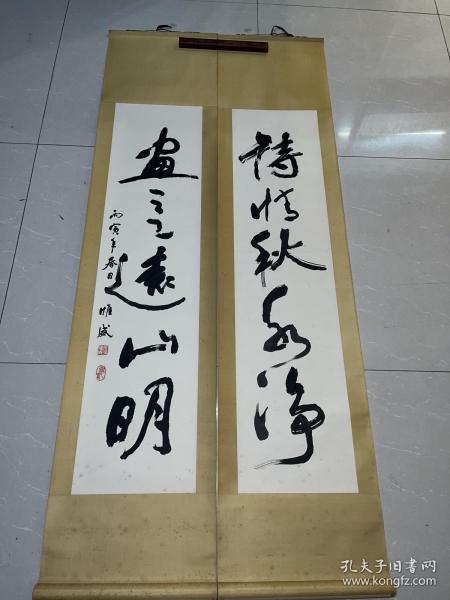 诗情秋水净
画意远山明
丙寅年春日
孔夫子旧书网
www.kongfz.com